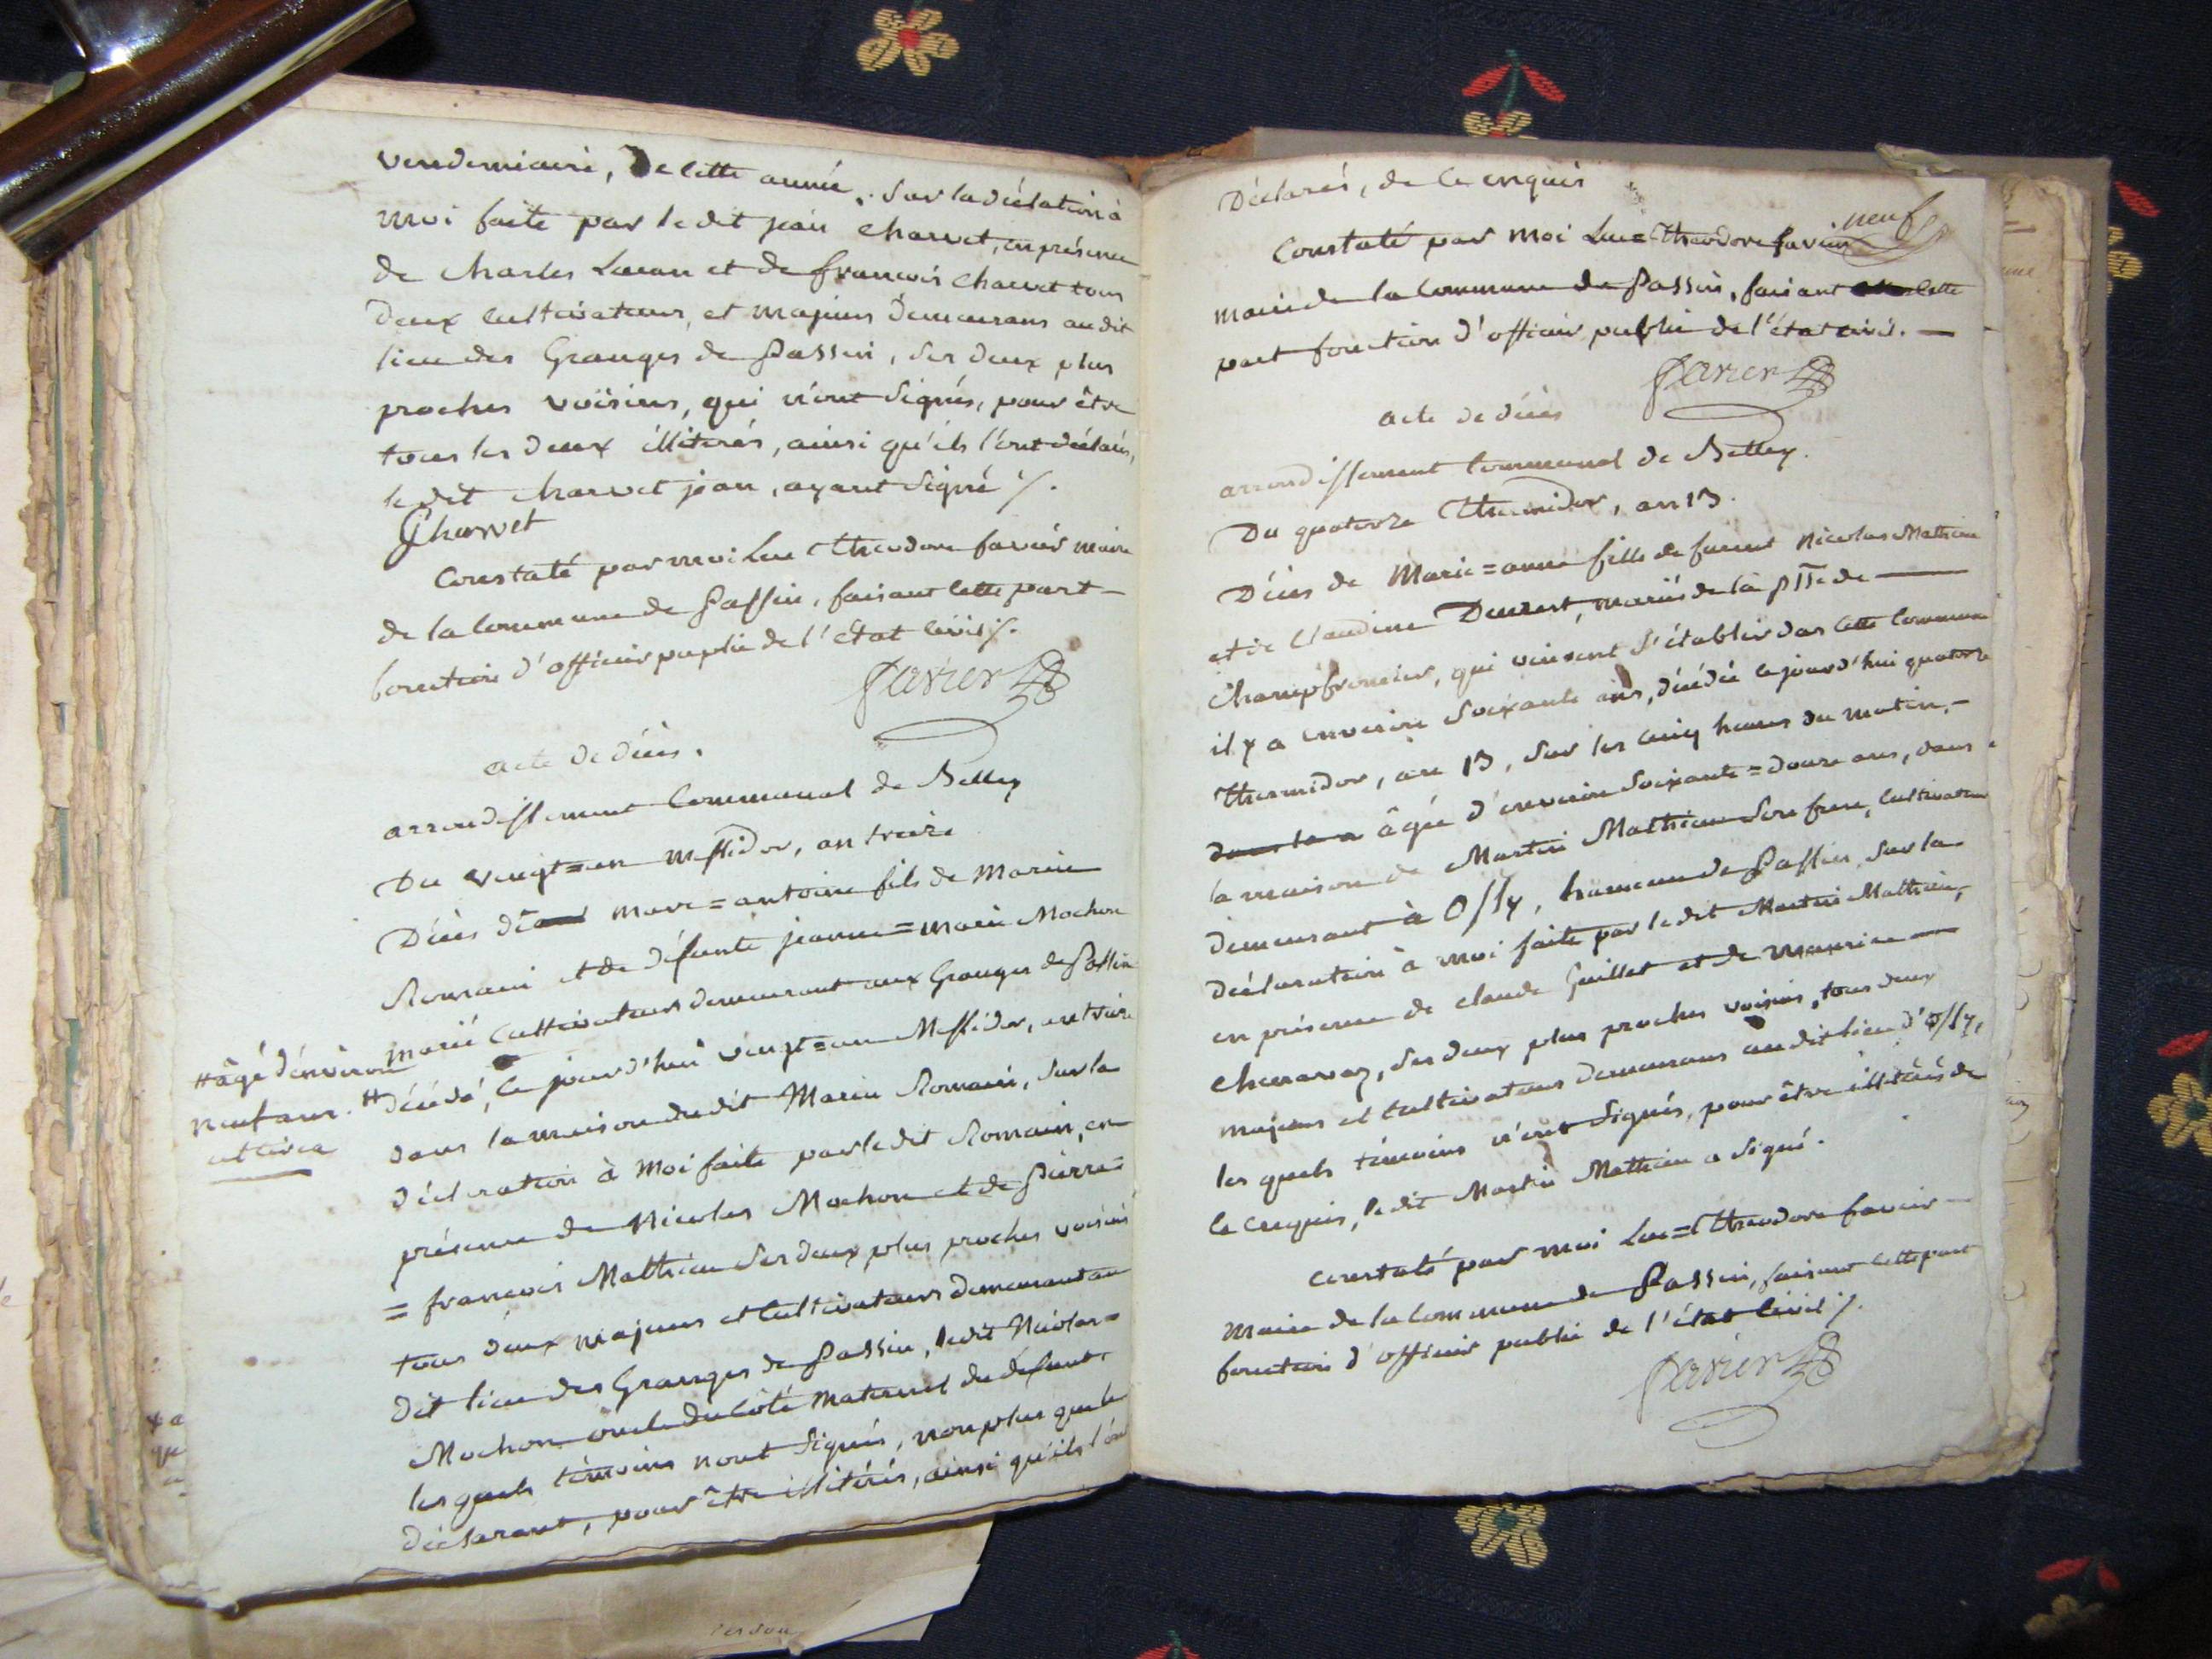 vendemiaire, De cette année. Sur la déclation à
moi faite par le dit jean Charvet, en présence
de Charles Lucan et de françois Charvet tous
deux cultivateurs, et majeurs demeurans au dit
lieu des Granges de Passin, ses deux plus
proches voisins, qui n'ont signés, pour être
tous les deux illiterés, ainsi qu'ils l'ont déclarés,
le dit Charvet jean, ayant signé %.
JCharvet
Constaté par moi Luc Theodore favier maire
de la Commune de Passin, faisant cette part
fonction d'officier puplic de l'état civil %.
favier
acte de décès.
arrondissement Communal de Belley
Du vingt=un messidor, an treize
Décès de marc=antoine fils de Marin
Romain et de défunte jeanne=marie Mochon
marié cultivateurs demeurant aux Granges de Passin
# décédé, ce jourd'hui vingt=un Messidor, an treize
# âgé d'environ
neuf ans.
dans la maison dudit Marin Romain, sur la
déclaration à moi faite par le dit Romain, en
présence de Nicolas Mochon et de Pierre=
=françois Mathieu ses deux plus proches voisins
tous deux majeurs et cultivateurs demeurant au
dit lieu des Granges de Passin, ledit Nicolas=
Mochon oncle du côté maternel du défunt,
les quels témoins nont signés, non plus que le
déclarant, pour être illitérés, ainsi qu'ils l'ont
Déclarés, de ce enquis
neuf
Constaté par moi Luc=Theodore favier
maire de la Commune de Passin, faisant cette
part fonction d'officier public de l'état civil. —
favier
acte de décès
arrondissement Communal de Belley.
Du quatorze Thermidor, an 13.
Décès de Marie=anne fille de furent Nicolas Mathieu
et de Claudine Ducrest, mariés de la psse de —
Champfromier, qui vinrent s'établir dans cette Commune
il y a environ soixante ans, décédée ce jourd'hui quatorze
thermidor, an 13, sur les cinq heures du matin, —
âgée d'environ soixante=douze ans, dans
la maison de Martin Mathieu son frere, cultivateur
demeurant à Ossy, hameau de Passin, sur la
déclaration à moi faite par le dit Martin Mathieu,
en présence de claude Guillet et de maurice —
Charavay, ses deux plus proches voisins, tous deux
majeurs et cultivateurs demeurans au dit lieu d'Ossy,
les quels témoins n'ont signés, pour être illitérés de
ce enquis, le dit Martin Mathieu a signé.
constaté par moi Luc=Theodore favier —
maire de la commune de Passin, faisant cette part
fonction d'officier public de l'état civil %.
favier